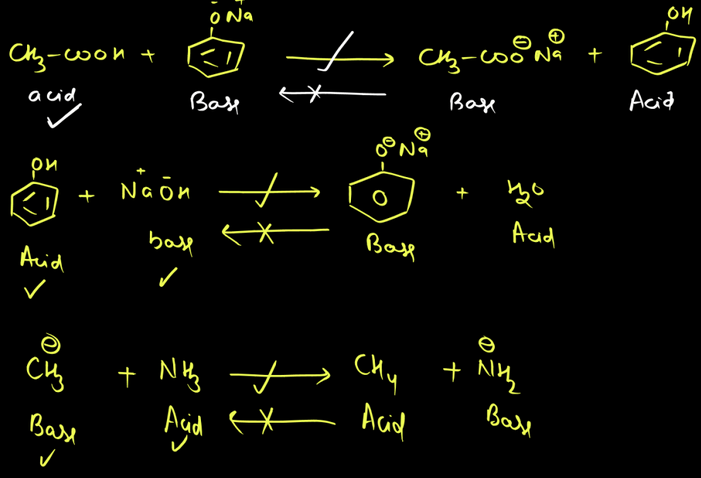 O⁻ Na⁺ OH
CH₃-COOH + → CH₃-COO⊖ Na⊕ +
acid Base Base Acid
OH O⊖ Na⊕
+ Na⁺ O⁻H → + H₂O
Acid base Base Acid
CH₃⊖ + NH₃ → CH₄ + NH₂⊖
Base Acid Acid Base